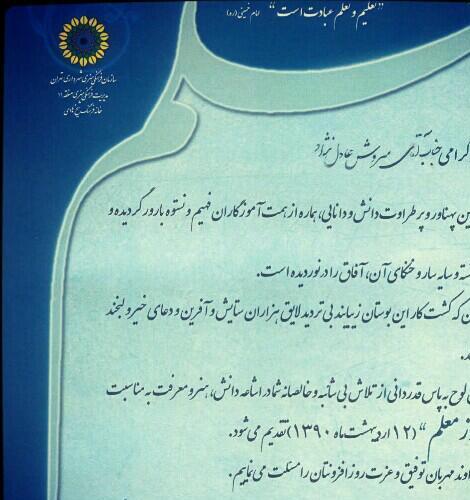 "تعلیم و تعلم عبادت است" امام خمینی (ره)
سازمان فرهنگی هنری شهرداری تهران
مدیریت فرهنگی هنری منطقه ۱۱
خانه فرهنگ
گرامی جناب آقای سروش عادل نژاد
پهناور و پر طراوت دانش و دانایی، هماره از همت آموزگاران فهیم و نستوه بارور گردیده و
و سایه سار و خنکای آن، آفاق را در نوردیده است.
که گشت کار این بوستان زیبایند بی تردید لایق هزاران ستایش و آفرین و دعای خیر و لبخند
لوح به پاس قدردانی از تلاش بی شائبه و خالصانه شما در اشاعه دانش، هنر و معرفت به مناسبت
معلم" (۱۲ اردیبهشت ماه ۱۳۹۰) تقدیم می شود.
مهربان توفیق و عزت روز افزونتان را مسئلت می نماییم.